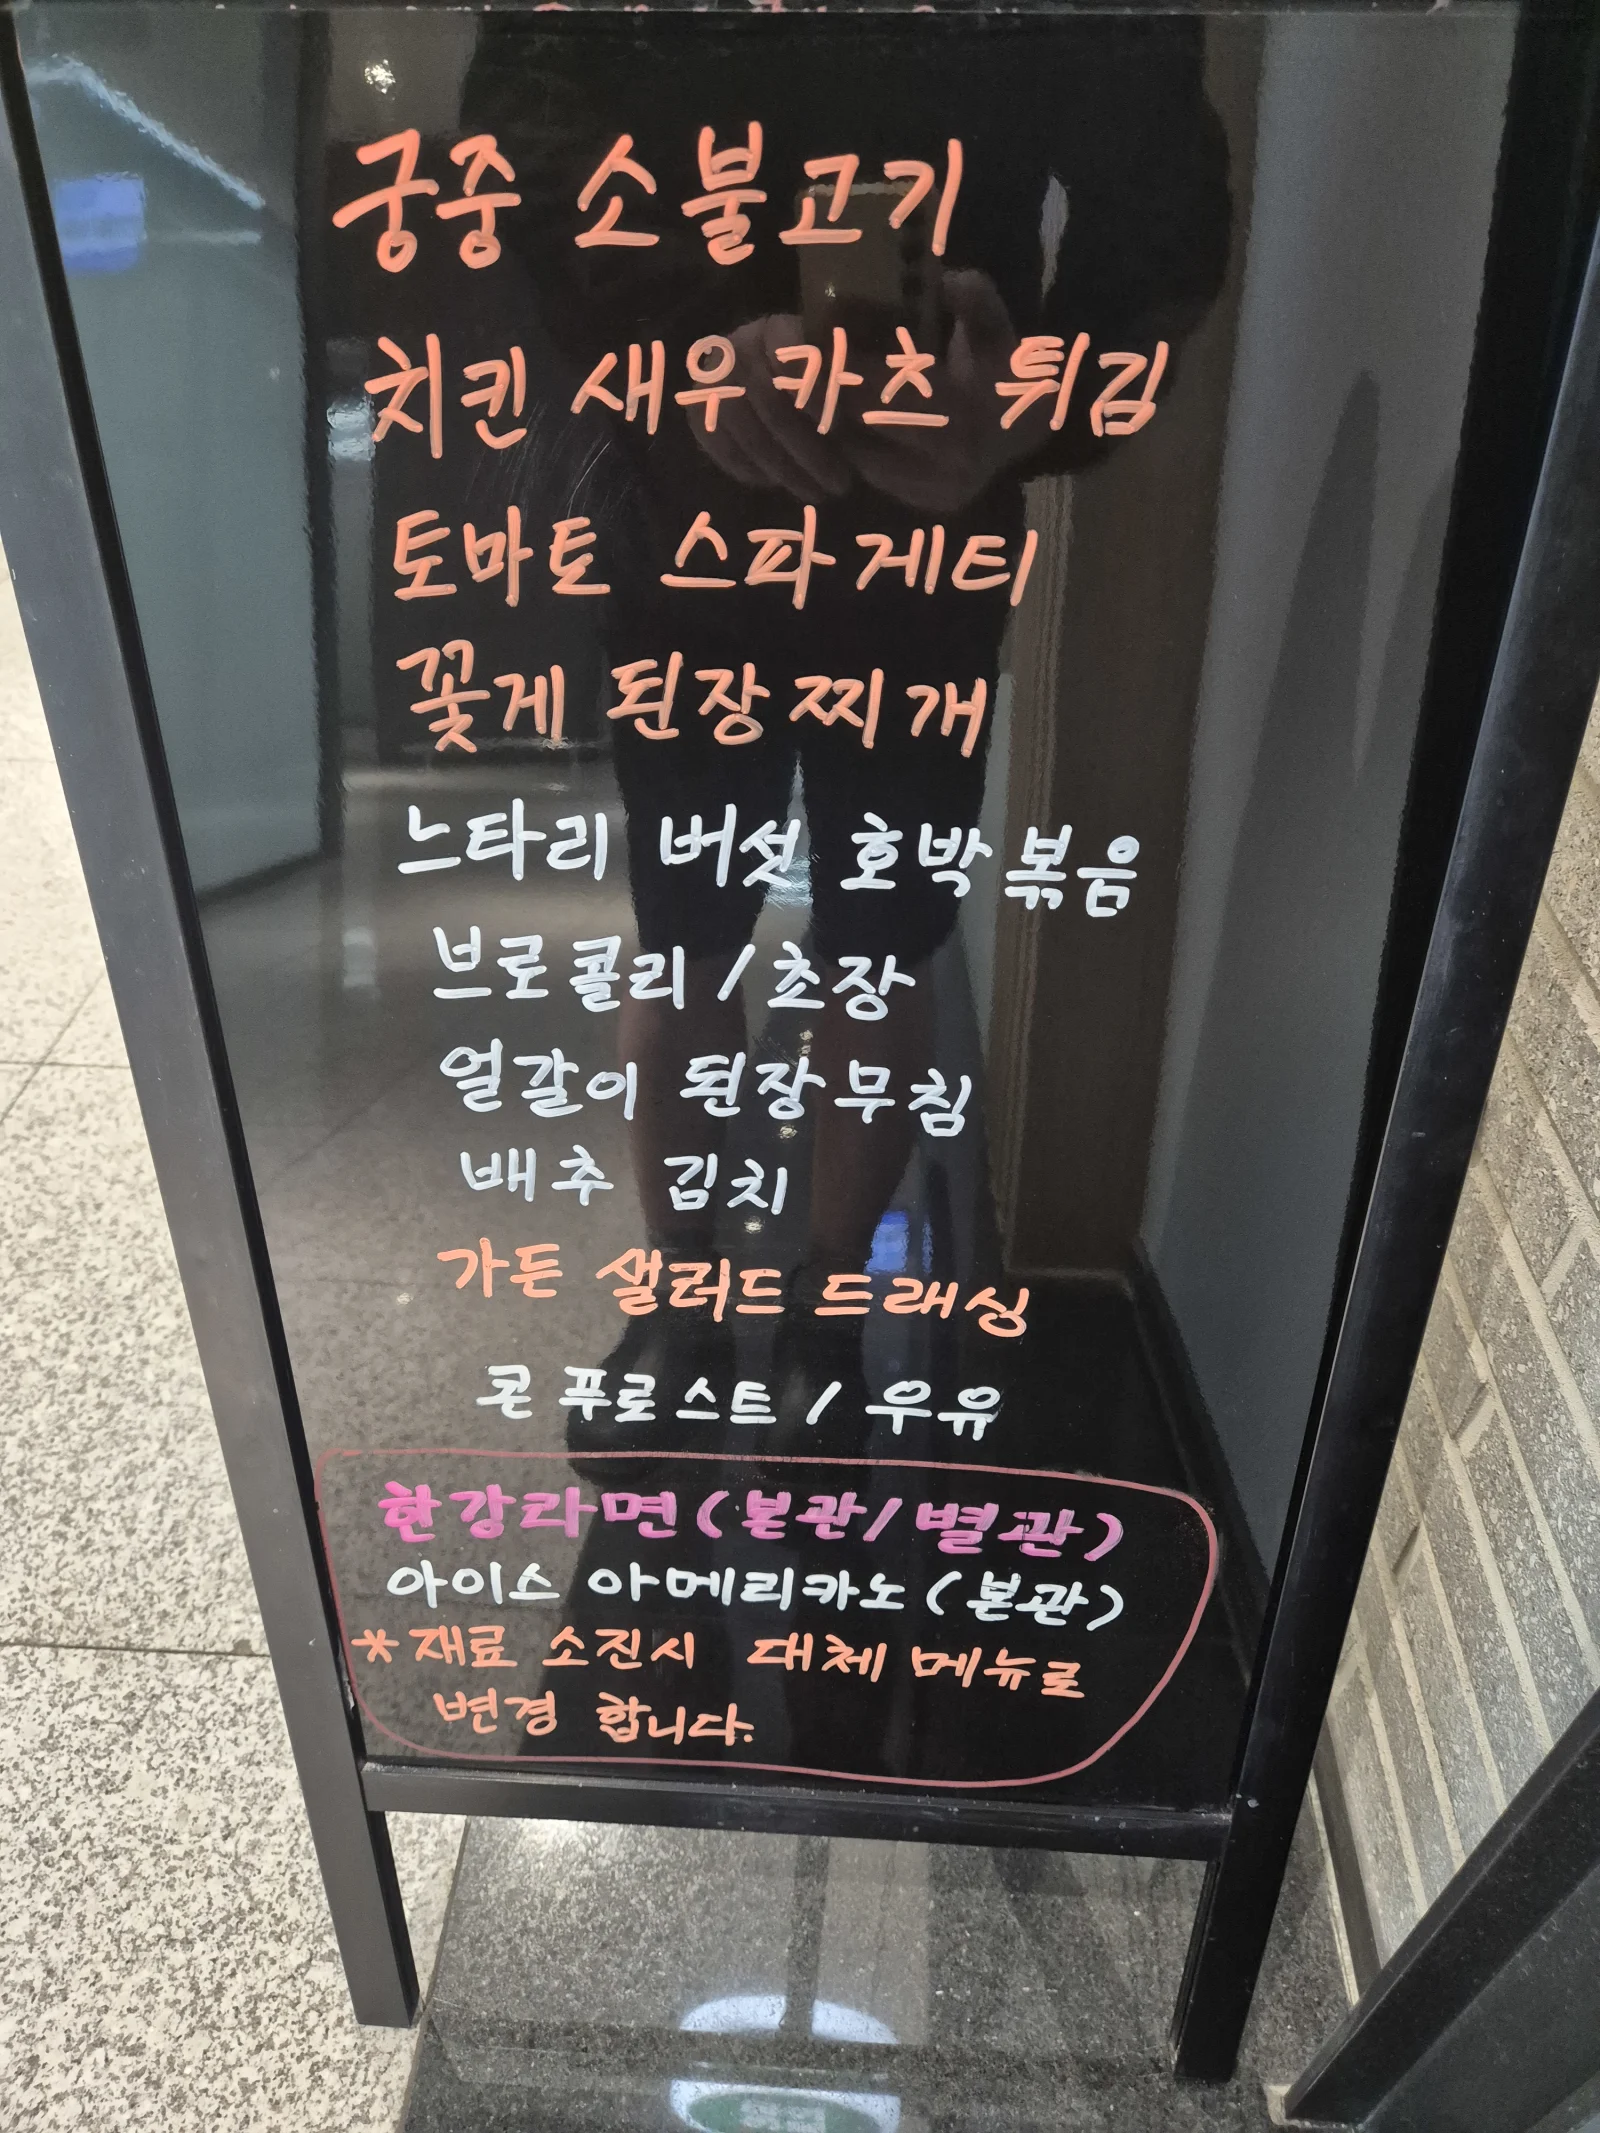 궁중 소불고기
치킨 새우카츠 튀김
토마토 스파게티
꽃게 된장찌개
느타리 버섯 호박볶음
브로콜리/초장
얼갈이 된장무침
배추 김치
가든 샐러드 드래싱
콘푸로스트/우유
한강라면(본관/별관)
아이스 아메리카노(본관)
*재료 소진시 대체 메뉴로
변경 합니다.